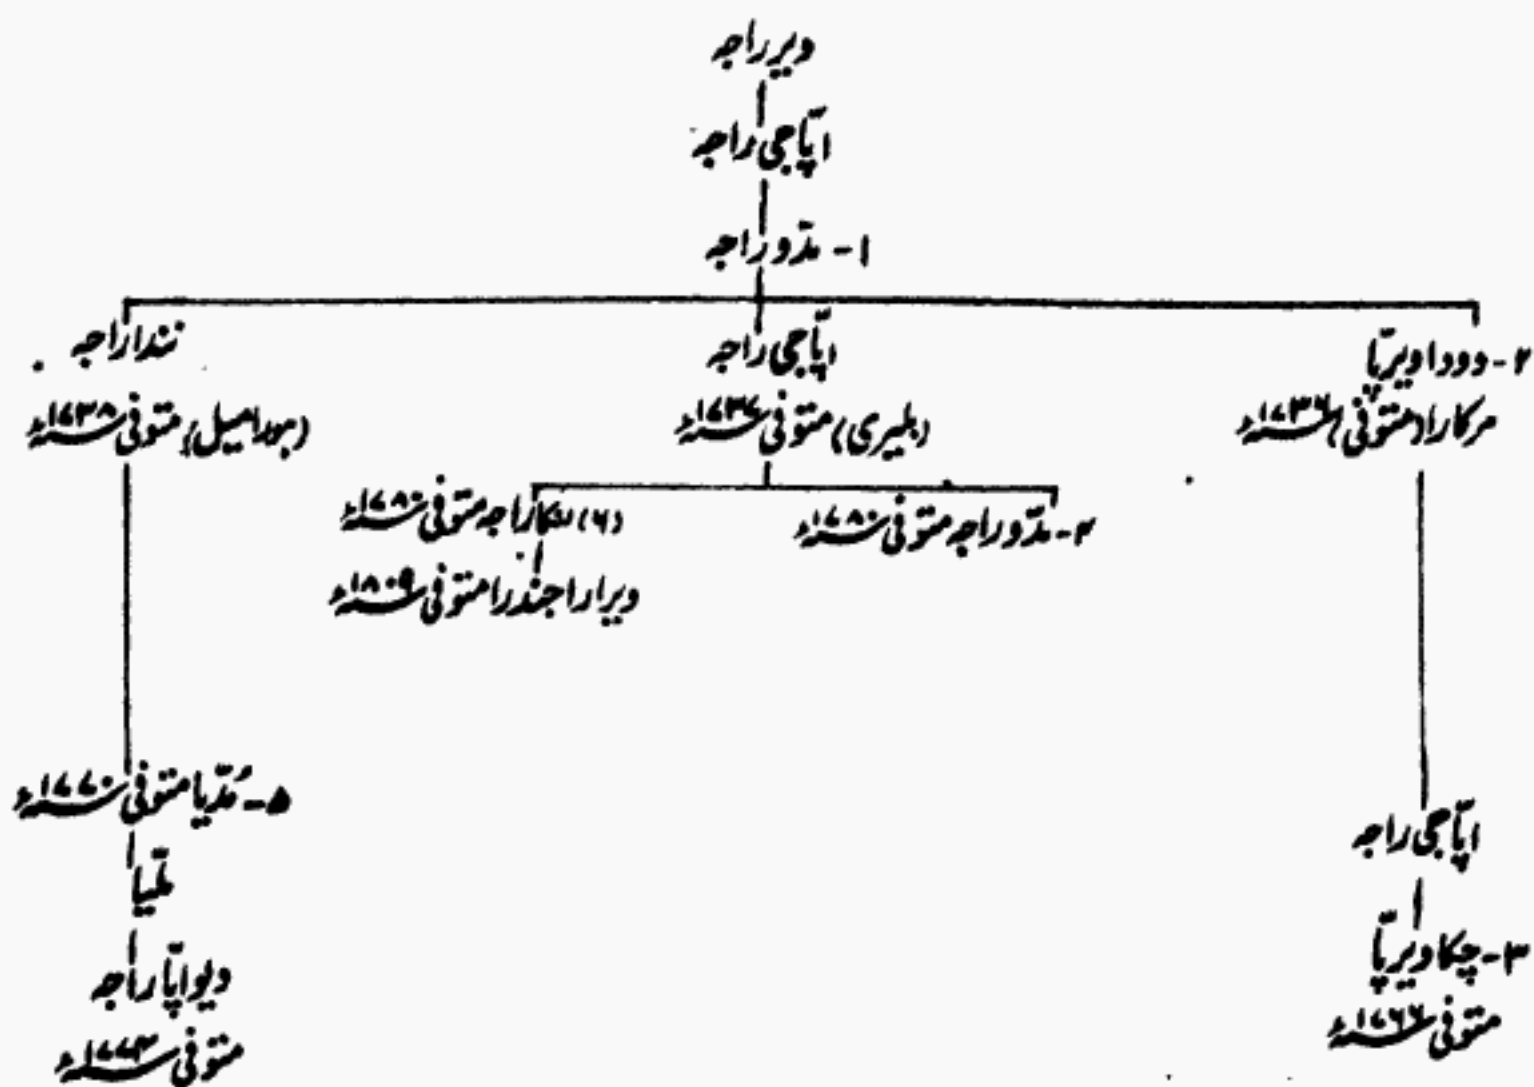 ویر راجہ
اپّاجی راجہ
۱- مدّو راجہ
۲- دودا ویرپّا
مرکارا (متوفی) ۱۷۳۶ء
اپّاجی راجہ
(ہلیری) متوفی ۱۷۳۷ء
نندا راجہ
(ہورامیل) متوفی ۱۷۳۸ء
۲- مدّو راجہ متوفی ۱۷۸۰ء
(۶) لنکا راجہ متوفی ۱۷۸۰ء
ویرا راجندرا متوفی ۱۸۰۹ء
اپّاجی راجہ
۳- چکا ویرپّا
متوفی ۱۷۶۶ء
۵- مُدّیا متوفی ۱۷۷۰ء
ملّیا
دیواپّا راجہ
متوفی